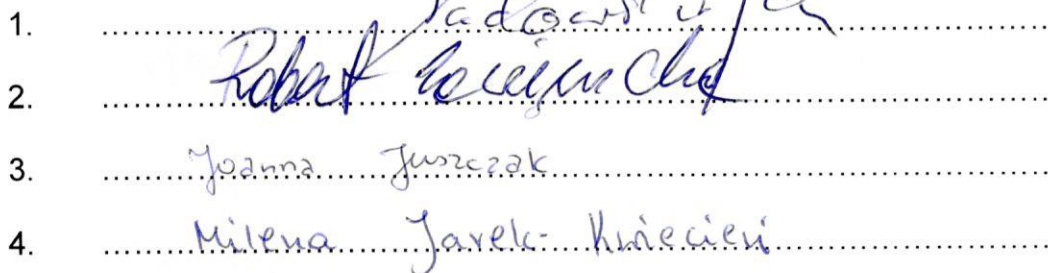 1.
2. Robert
3. Joanna Juszczak
4. Milena Jarek-Kwiecień